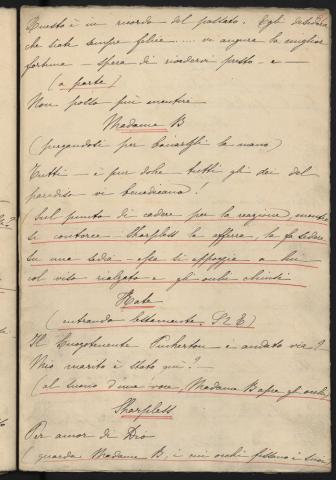 Questo è un ricordo del passato. Egli desidera
che siate sempre felice ..... vi augura la miglior
fortuna – spera di rivedervi presto – e –
(a parte)
Non posso più mentire
Madame B
(piegandosi per baciargli la mano)
Tutti – è pur dolce tutti gli dei del
paradiso vi benedicano!
(Sul punto di cadere per la reazione, mentre
si contorce. Sharpless la afferra, la fa sedere
su una sedia – essa si appoggia a lui
col viso rialzato e gli occhi chiusi
Kate
(entrando lestamente. S 2 E)
Il Luogotenente Pinkerton è andato via?
Mio marito è stato qui? –
(al suono d'una voce, Madame B apre gli occhi
Sharpless
Per amor di Dio
(guarda Madame B, i cui occhi fissano i suoi